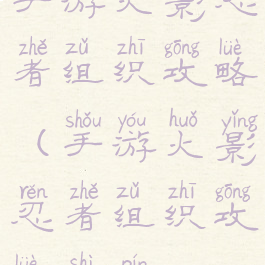 手游火影忍
zhě zǔ zhī gōng lüè
者组织攻略
shǒu yóu huǒ yǐng
(手游火影
rěn zhě zǔ zhī gōng
忍者组织攻
lüè shì pín